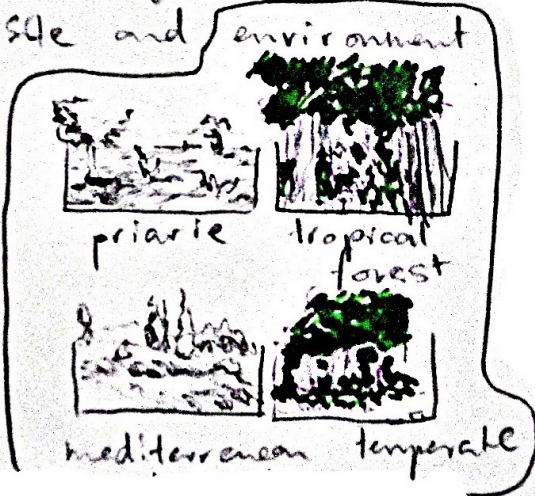 and environment
priarie
tropical
forest
mediterrenean
temperate